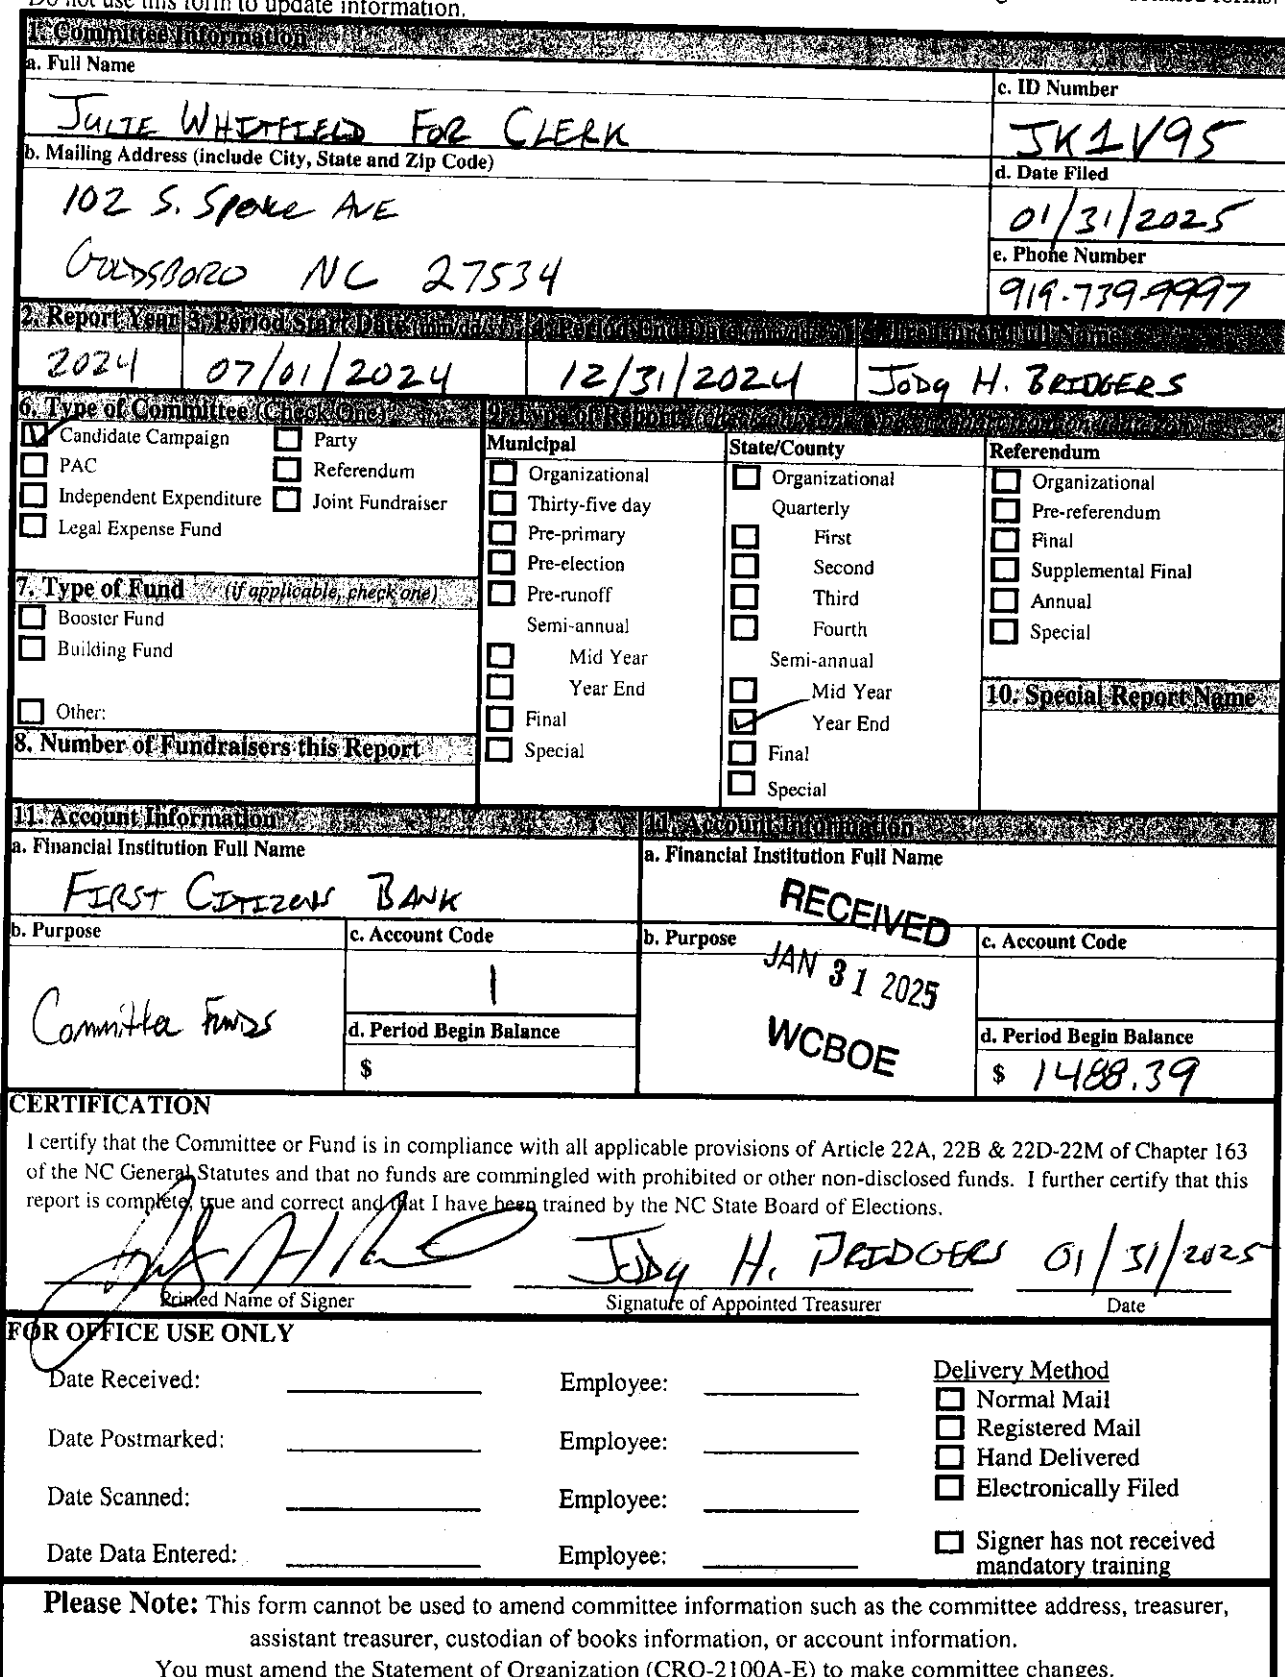 Do not use this form to update information.
1. Committee Information
a. Full Name
c. ID Number
JULIE WHITFIELD FOR CLERK
JK1V95
b. Mailing Address (include City, State and Zip Code)
d. Date Filed
102 S. Spence AVE
01/31/2025
GOLDSBORO NC 27534
e. Phone Number
919-739-9997
2. Report Year 3. Period Start Date (mm/dd/yy) 4. Period End Date (mm/dd/yy) 5. Treasurer Full Name
2024 07/01/2024 12/31/2024 JODY H. BRIDGERS
6. Type of Committee (Check One)
Candidate Campaign Party
PAC Referendum
Independent Expenditure Joint Fundraiser
Legal Expense Fund
7. Type of Fund (if applicable, check one)
Booster Fund
Building Fund
Other:
8. Number of Fundraisers this Report
9. Type of Report
Municipal
Organizational
Thirty-five day
Pre-primary
Pre-election
Pre-runoff
Semi-annual
Mid Year
Year End
Final
Special
State/County
Organizational
Quarterly
First
Second
Third
Fourth
Semi-annual
Mid Year
Year End
Final
Special
Referendum
Organizational
Pre-referendum
Final
Supplemental Final
Annual
Special
10. Special Report Name
11. Account Information
a. Financial Institution Full Name
FIRST CITIZENS BANK
b. Purpose
Committee FUNDS
c. Account Code
1
d. Period Begin Balance
$
11. Account Information
a. Financial Institution Full Name
RECEIVED
JAN 31 2025
WCBOE
b. Purpose
c. Account Code
d. Period Begin Balance
$ 1488.39
CERTIFICATION
I certify that the Committee or Fund is in compliance with all applicable provisions of Article 22A, 22B & 22D-22M of Chapter 163
of the NC General Statutes and that no funds are commingled with prohibited or other non-disclosed funds. I further certify that this
report is complete, true and correct and that I have been trained by the NC State Board of Elections.
JODY H. BRIDGERS 01/31/2025
Printed Name of Signer Signature of Appointed Treasurer Date
FOR OFFICE USE ONLY
Date Received: Employee:
Date Postmarked: Employee:
Date Scanned: Employee:
Date Data Entered: Employee:
Delivery Method
Normal Mail
Registered Mail
Hand Delivered
Electronically Filed
Signer has not received
mandatory training
Please Note: This form cannot be used to amend committee information such as the committee address, treasurer,
assistant treasurer, custodian of books information, or account information.
You must amend the Statement of Organization (CRO-2100A-E) to make committee changes.